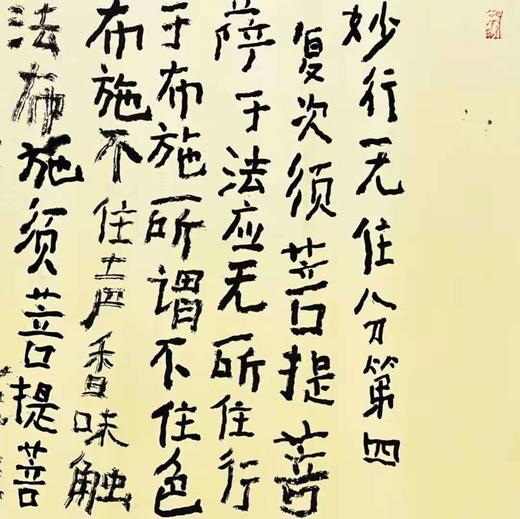 妙行无住分第四
复次须菩提菩
萨于法应无所住行
于布施所谓不住色
布施不住声香味触
法布施须菩提菩